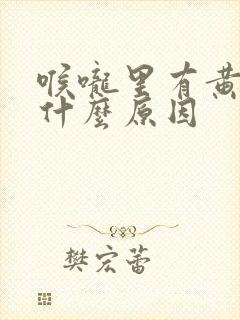 喉嚨里有黄
什麼原因
樊宏蕾